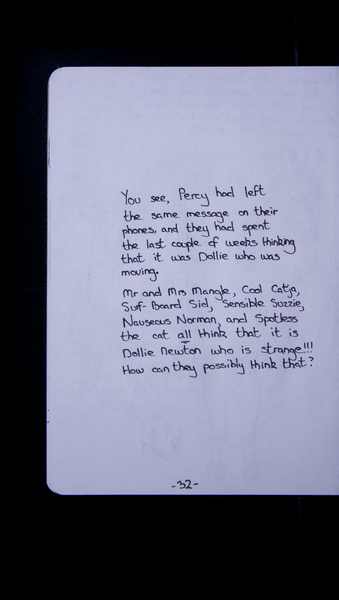 You see, Percy had left
the same message on their
phones, and they had spent
the last couple of weeks thinking
that it was Dollie who was
moving.
Mr and Mrs Mangle, Cool Catja,
Surf-Board Sid, Sensible Suzzie,
Nauseous Norman, and Spotless
the cat all think that it is
Dollie Newton who is strange!!!
How can they possibly think that?
-32-